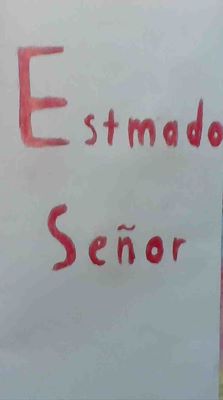 Estmado
Señor